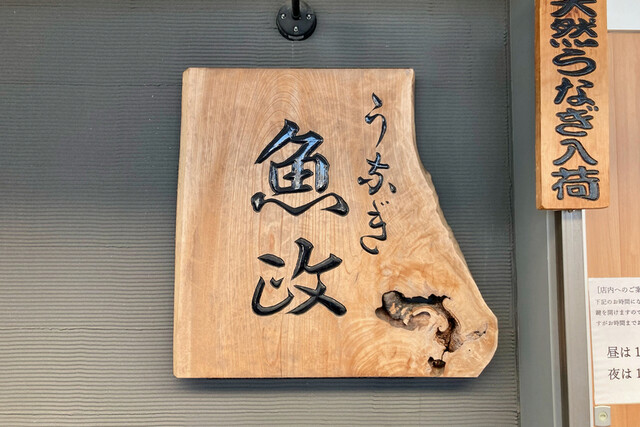 うなぎ
魚政
天然うなぎ入荷
[店内へのご
下記のお時間にな
鍵を開けますので
すがお時間まで
昼は1
夜は1